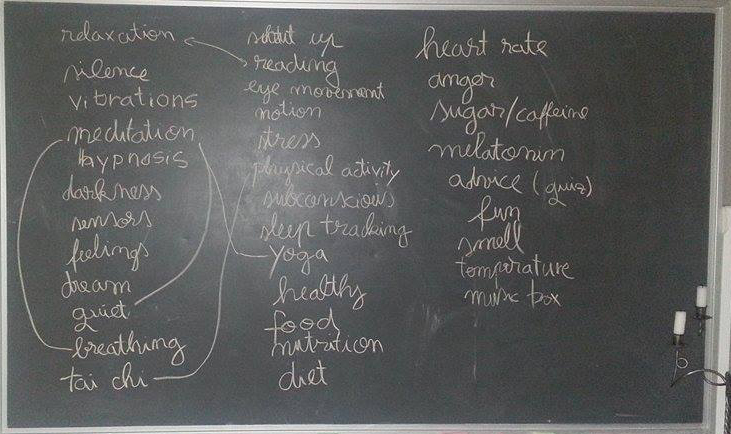 relaxation
silence
vibrations
meditation
hypnosis
darkness
sensors
feelings
dream
quiet
breathing
tai chi
shut up
reading
eye movement
motion
stress
physical activity
subconscious
sleep tracking
yoga
healthy
food
nutrition
diet
heart rate
anger
sugar/caffeine
melatonin
advice (quiz)
fun
smell
temperature
music box